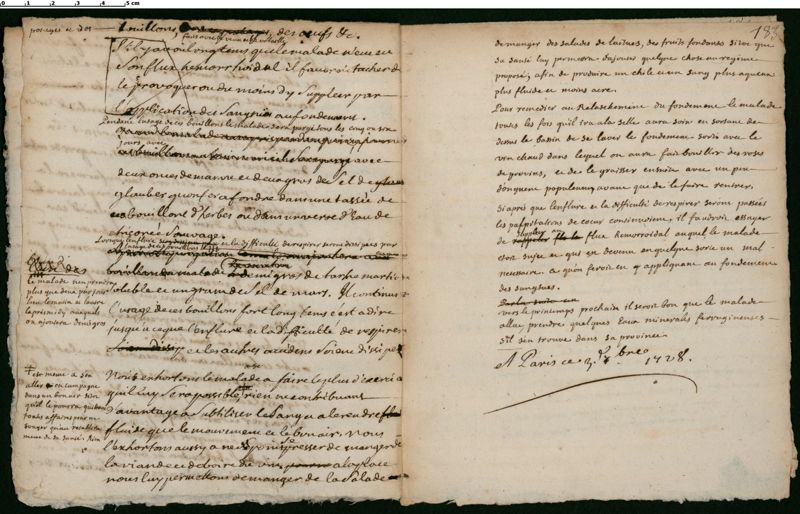 0 1 2 3 4 5 cm
183
potages et des
bouillons, des oeufs &c.
S'il y avoit longtems que le malade n'eut eu
son flux hemorrhoidal il faudroit tacher de
le provoquer ou du moins d'y suppleer par
l'application des sangsues au fondement.
Pendant l'usage de ces bouillons le malade sera purgé tous les cinq ou six
jours, avec
deux onces de manne et deux gros de sel de
glauber qu'on fera fondre dans une tassée de
bouillon d'herbes ou dans un verre d'eau de
chicorée sauvage.
Lorsque l'enflure et la difficulté de respirer seront dissipées par
l'usage de ces bouillons
le malade n'en prendra
plus que deux par jour
l'un le matin et l'autre
on ajoutera demi gros
demi gros de tartre martial
soluble et un grain de sel de mars. Il continuera
l'usage de ces bouillons fort longtems c'est a dire
jusqu'a ce que l'enflure et la difficulté de respirer
et les autres accidens soient dissipés
Nous exhortons le malade a faire le plus d'exercice
qu'il luy sera possible, rien ne contribuant
d'avantage a subtiliser le sang et a le rendre
fluide que le mouvement et le bon air. Nous
l'exhortons aussy a ne point se presser de manger de
la viande et de boire du vin a la place
nous luy permettons de manger de la salade
et meme a s'en
aller en campagne
dans un bon air s'il
toutes affaires pour ne
songer qu'au retablisse
ment de sa santé. Rien
de manger des salades de laitues, des fruits fondants si tot que
sa santé luy permettra d'ajouter quelque chose au regime
proposé; afin de produire un chile et un sang plus aqueux
plus fluide et moins acre.
Pour remedier au Relachement du fondement le malade
toutes les fois qu'il ira a la selle aura soin en sortant de
dessus le bassin de se laver le fondement soit avec le
vin chaud dans lequel on aura fait bouillir des roses
de provins, et de le graisser ensuite avec un peu
d'onguent populeum avant que de le faire rentrer.
Si apres que l'enflure et la difficulté de respirer seront passées
les palpitations de coeur continuoient, il faudroit essayer
de suppléer au flux hemorroidal auquel le malade
etoit sujet et qui est devenu en quelque sorte un mal
necessaire. ce qu'on feroit en y appliquant au fondement
des sangsues.
vers le printemps prochain il seroit bon que le malade
alla prendre quelques eaux minerales ferrugineuses
s'il s'en trouve dans sa province.
A Paris ce 1728.